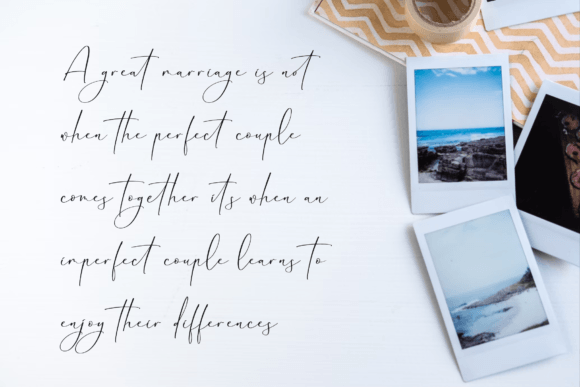 A great marriage is not
when the perfect couple
comes together it's when an
imperfect couple learns to
enjoy their differences